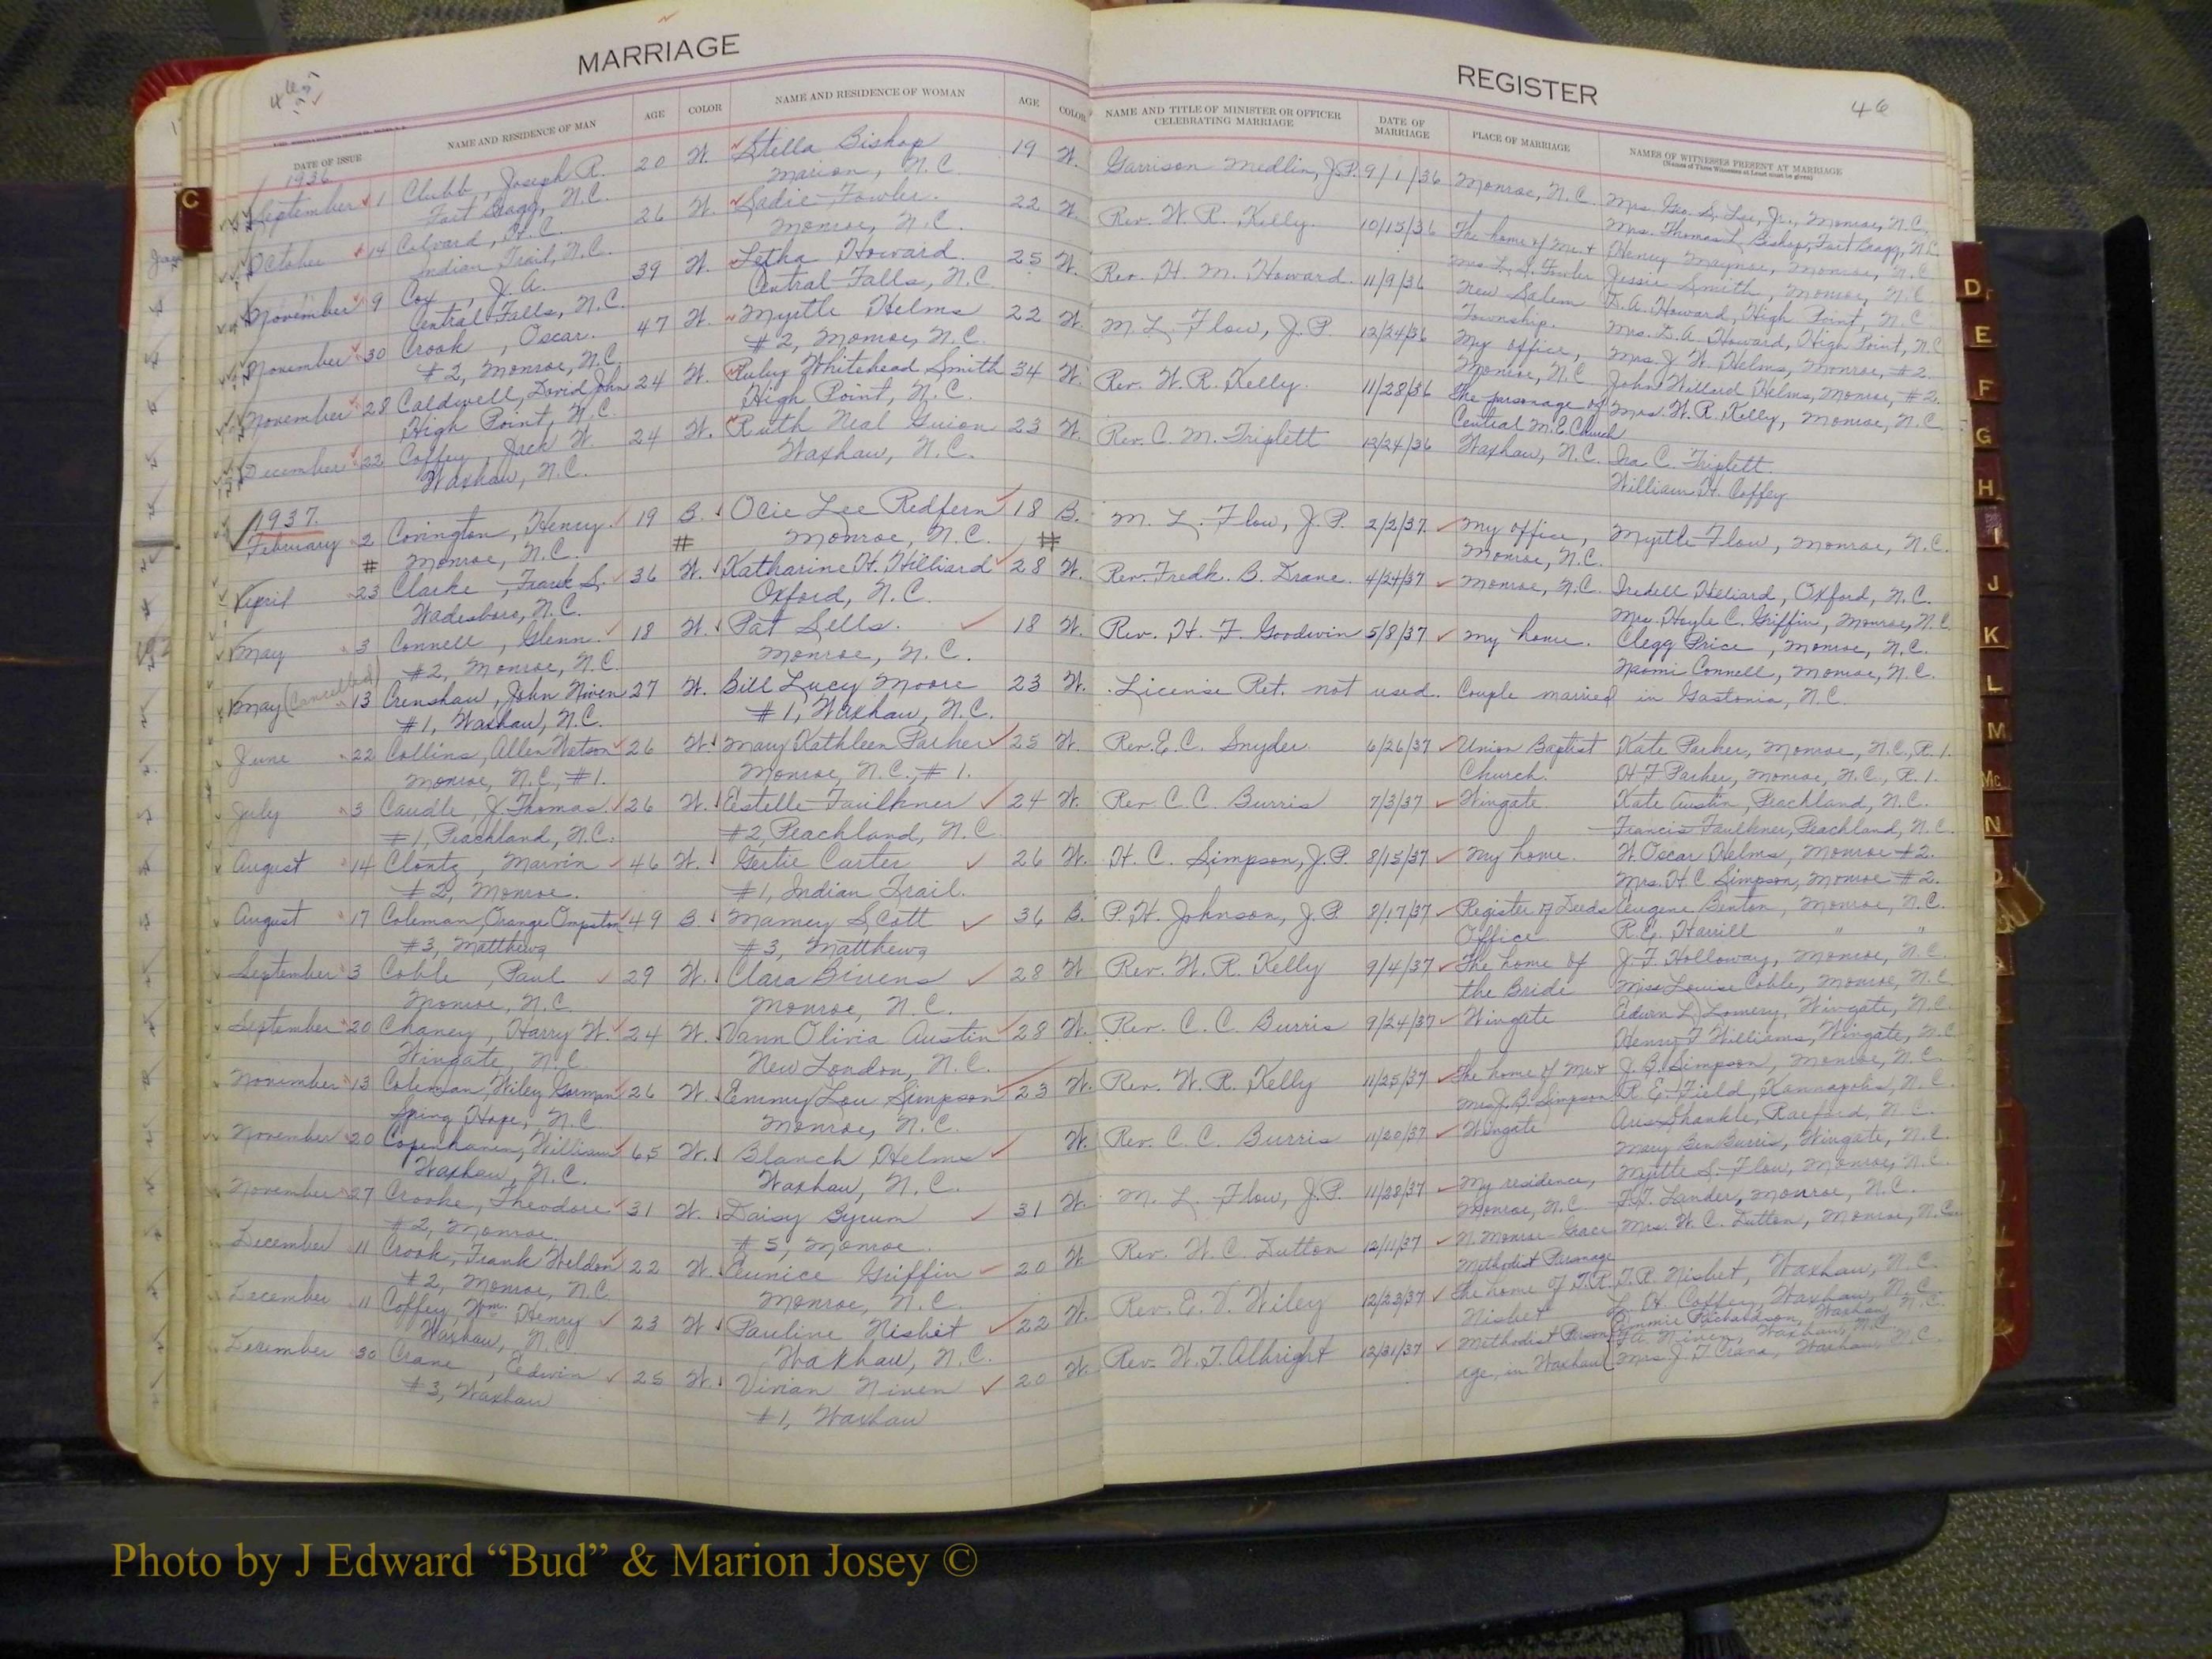 MARRIAGE
REGISTER
46
46
DATE OF ISSUE NAME AND RESIDENCE OF MAN AGE COLOR NAME AND RESIDENCE OF WOMAN AGE COLOR NAME AND TITLE OF MINISTER OR OFFICER CELEBRATING MARRIAGE DATE OF MARRIAGE PLACE OF MARRIAGE NAMES OF WITNESSES PRESENT AT MARRIAGE
(Names of Three Witnesses at Least must be given)
1936
September 1 Clubb, Joseph R. 20 W. Stella Bishop 19 W. Garrison Medlin, J.P. 9/1/36 Monroe, N.C. Mrs. Geo. S. Lee, Jr., Monroe, N.C.
Fort Bragg, N.C. Marion, N.C. Mrs. Thomas L. Bishop, Fort Bragg, N.C.
October 14 Colvard, H.C. 26 W. Sadie Fowler. 22 W. Rev. W. R. Kelly. 10/15/36 The home of Mr. + Henry Maynor, Monroe, N.C.
Indian Trail, N.C. Monroe, N.C. Mrs. L. S. Fowler Jessie Smith, Monroe, N.C.
November 9 Cox, J. A. 39 W. Letha Howard 25 W. Rev. H. M. Howard. 11/9/36 New Salem D. A. Howard, High Point, N.C.
Central Falls, N.C. Central Falls, N.C. Township. Mrs. D. A. Howard, High Point, N.C.
November 30 Crook, Oscar. 47 W. Myrtle Helms 22 W. M. L. Flow, J.P. 12/24/36 My office, Mrs. J. W. Helms, Monroe, #2.
#2, Monroe, N.C. #2, Monroe, N.C. Monroe, N.C. John Willard Helms, Monroe, #2.
November 28 Caldwell, David John 24 W. Ruby Whitehead Smith 34 W. Rev. W. R. Kelly. 11/28/36 The parsonage of Mrs. W. R. Kelly, Monroe, N.C.
High Point, N.C. High Point, N.C. Central M.E. Church
December 22 Coffey, Jack W. 24 W. Ruth Neal Guion 23 W. Rev. C. M. Triplett 12/24/36 Waxhaw, N.C. Ira C. Triplett
Waxhaw, N.C. Waxhaw, N.C. William H. Coffey
1937.
February 2 Covington, Henry. 19 B. Ocie Lee Redfern 18 B. M. L. Flow, J.P. 2/2/37. My office, Myrtle Flow, Monroe, N.C.
# Monroe, N.C. # Monroe, N.C. # Monroe, N.C.
April 23 Clarke, Frank S. 36 W. Katharine H. Hilliard 28 W. Rev. Fredk. B. Drane. 4/24/37 Monroe, N.C. Iredell Hilliard, Oxford, N.C.
Wadesboro, N.C. Oxford, N.C. Mrs. Hoyle C. Griffin, Monroe, N.C.
May 3 Connell, Glenn. 18 W. Pat Sells. 18 W. Rev. H. F. Goodwin 5/8/37 My home. Clegg Price, Monroe, N.C.
#2, Monroe, N.C. Monroe, N.C. Naomi Connell, Monroe, N.C.
May (Cancelled) 13 Crenshaw, John Niven 27 W. Bill Lucy Moore 23 W. License Ret. not used. Couple married in Gastonia, N.C.
#1, Waxhaw, N.C. #1, Waxhaw, N.C.
June 22 Collins, Allen Watson 26 W. Mary Kathleen Parker 25 W. Rev. E. C. Snyder. 6/26/37 Union Baptist Kate Parker, Monroe, N.C., R. 1.
Monroe, N.C., #1. Monroe, N.C., #1. Church. H F Parker, Monroe, N.C., R. 1.
July 3 Caudle, J. Thomas. 26 W. Estelle Faulkner 24 W. Rev C. C. Burris 7/3/37 Wingate Kate Austin, Peachland, N.C.
#1, Peachland, N.C. #2, Peachland, N.C. Francis Faulkner, Peachland, N.C.
August 14 Clontz, Marvin 46 W. Gertie Carter 26 W. H. C. Simpson, J.P. 8/15/37 My home. W. Oscar Helms, Monroe #2.
#2, Monroe. #1, Indian Trail. Mrs. H. C. Simpson, Monroe #2.
August 17 Coleman, Orange Ompston 49 B. Mamey Scott 36 B. P. H. Johnson, J.P. 8/17/37 Register of Deeds Eugene Benton, Monroe, N.C.
#3, Matthews #3, Matthews Office R. E. Harrill " "
September 3 Coble, Paul 29 W. Clara Bivens 28 W Rev. W. R. Kelly 9/4/37 The home of J. F. Holloway, Monroe, N.C.
Monroe, N.C. Monroe, N.C. the Bride Miss Louise Coble, Monroe, N.C.
September 20 Chaney, Harry W. 24 W. Vann Olivia Austin 28 W. Rev. C. C. Burris 9/24/37 Wingate Edwin L. Lowery, Wingate, N.C.
Wingate, N.C. New London, N.C. Henry F Williams, Wingate, N.C.
November 13 Coleman, Wiley Gorman 26 W. Emmy Lou Simpson 23 W. Rev. W. R. Kelly 11/25/37 The home of Mr + J. B. Simpson, Monroe, N.C.
Spring Hope, N.C. Monroe, N.C. Mrs J. B. Simpson R. E. Field, Kannapolis, N.C.
November 20 Copenhaver, William 65 W. Blanch Helms W. Rev. C. C. Burris 11/20/37 Wingate Shankle, Raeford, N.C.
Waxhaw, N.C. Waxhaw, N.C. Mary Ben Burris, Wingate, N.C.
November 27 Crooke, Theodore 31 W. Daisy Byrum 31 W. M. L. Flow, J.P. 11/28/37 My residence, Myrtle S. Flow, Monroe, N.C.
#2, Monroe. #5, Monroe. Monroe, N.C. Lander, Monroe, N.C.
December 11 Crook, Frank Weldon 22 W. Eunice Griffin 20 W Rev. W. C. Dutton 12/11/37 N. Monroe-Grace Mrs. W. C. Dutton, Monroe, N.C.
#2, Monroe, N.C. Monroe, N.C. Methodist Parsonage
December 11 Coffey, Wm. Henry 23 W Pauline Nisbet 22 W. Rev. E. V. Wiley 12/23/37 The home of T.R. T. R. Nisbet, Waxhaw, N.C.
Waxhaw, N.C. Waxhaw, N.C. Nisbet L. H. Coffey, Waxhaw, N.C.
Richardson, Waxhaw, N.C.
December 30 Crane, Edwin 25 W. Vivian Niven 20 W Rev. W. T. Albright 12/31/37 Methodist Parson- Niven, Waxhaw, N.C.
#3, Waxhaw #1, Waxhaw age, in Waxhaw Mrs. J. T. Crane, Waxhaw, N.C.
C
D
E
F
G
H
I
J
K
L
M
Mc
N
O
Photo by J Edward “Bud” & Marion Josey ©